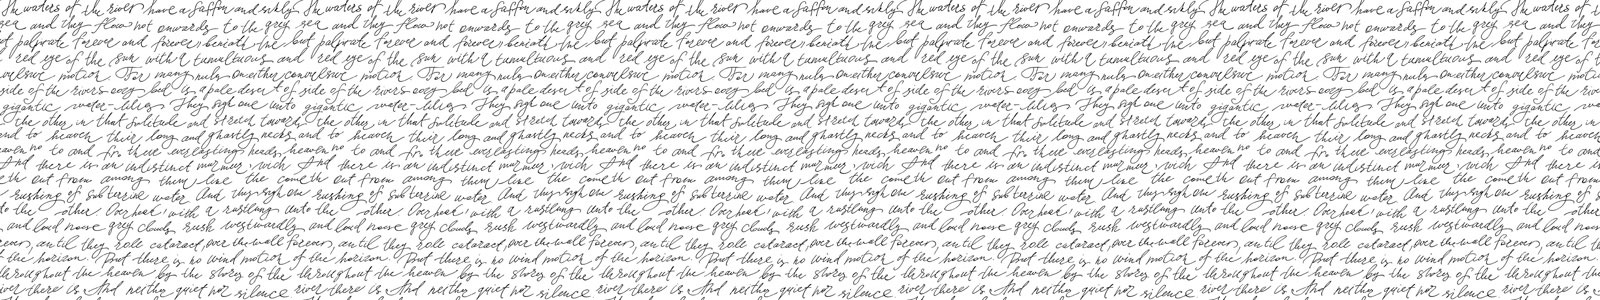 The waters of the river have a saffron and sickly The waters of the river have a saffron and sickly The waters of the river have a saffron and sickly The waters of the river have a saffron and sickly The waters of the river have a saffron and sickly The waters of
sea and they flow not onwards to the grey sea and they flow not onwards to the grey sea and they flow not onwards to the grey sea and they flow not onwards to the grey sea and they flow not onwards to the grey sea and they
but palpitate forever and forever beneath the but palpitate forever and forever beneath the but palpitate forever and forever beneath the but palpitate forever and forever beneath the but palpitate forever and forever beneath the but palpitate
red eye of the sun with a tumultuous and red eye of the sun with a tumultuous and red eye of the sun with a tumultuous and red eye of the sun with a tumultuous and red eye of the sun with a tumultuous and red eye of the
convulsive motion For many miles on either convulsive motion For many miles on either convulsive motion For many miles on either convulsive motion For many miles on either convulsive motion For many miles on either convulsive motion
side of the rivers oozy bed is a pale desert of side of the rivers oozy bed is a pale desert of side of the rivers oozy bed is a pale desert of side of the rivers oozy bed is a pale desert of side of the rivers oozy bed is a pale desert of side of the
gigantic water-lilies They sigh one unto gigantic water-lilies They sigh one unto gigantic water-lilies They sigh one unto gigantic water-lilies They sigh one unto gigantic water-lilies They sigh one unto gigantic
the other in that solitude and stretch towards the other in that solitude and stretch towards the other in that solitude and stretch towards the other in that solitude and stretch towards the other in that solitude and stretch towards the other
and to heaven their long and ghastly necks and to heaven their long and ghastly necks and to heaven their long and ghastly necks and to heaven their long and ghastly necks and to heaven their long and ghastly necks and to heaven
to and fro their everlasting heads, to and fro their everlasting heads, to and fro their everlasting heads, to and fro their everlasting heads, to and fro their everlasting heads, to and
And there is an indistinct murmur which And there is an indistinct murmur which And there is an indistinct murmur which And there is an indistinct murmur which And there is an indistinct murmur which And there is
cometh out from among them like the cometh out from among them like the cometh out from among them like the cometh out from among them like the cometh out from among them like the cometh out from
rushing of subterrine water And they sigh one rushing of subterrine water And they sigh one rushing of subterrine water And they sigh one rushing of subterrine water And they sigh one rushing of subterrine water And they sigh one rushing of
to the other Overhead, with a rustling unto the other Overhead, with a rustling unto the other Overhead, with a rustling unto the other Overhead, with a rustling unto the other Overhead, with a rustling unto the other
and loud noise grey clouds rush westwardly and loud noise grey clouds rush westwardly and loud noise grey clouds rush westwardly and loud noise grey clouds rush westwardly and loud noise grey clouds rush westwardly and loud noise
until they role cataract over the wall forever, until they role cataract over the wall forever, until they role cataract over the wall forever, until they role cataract over the wall forever, until they role cataract over the wall forever, until
of the horizon. But there is no wind motion of the horizon. But there is no wind motion of the horizon. But there is no wind motion of the horizon. But there is no wind motion of the horizon. But there is no wind motion of the horizon.
throughout the heaven by the shores of the throughout the heaven by the shores of the throughout the heaven by the shores of the throughout the heaven by the shores of the throughout the heaven by the shores of the throughout the
river there is And neither quiet nor silence river there is And neither quiet nor silence river there is And neither quiet nor silence river there is And neither quiet nor silence river there is And neither quiet nor silence river there is